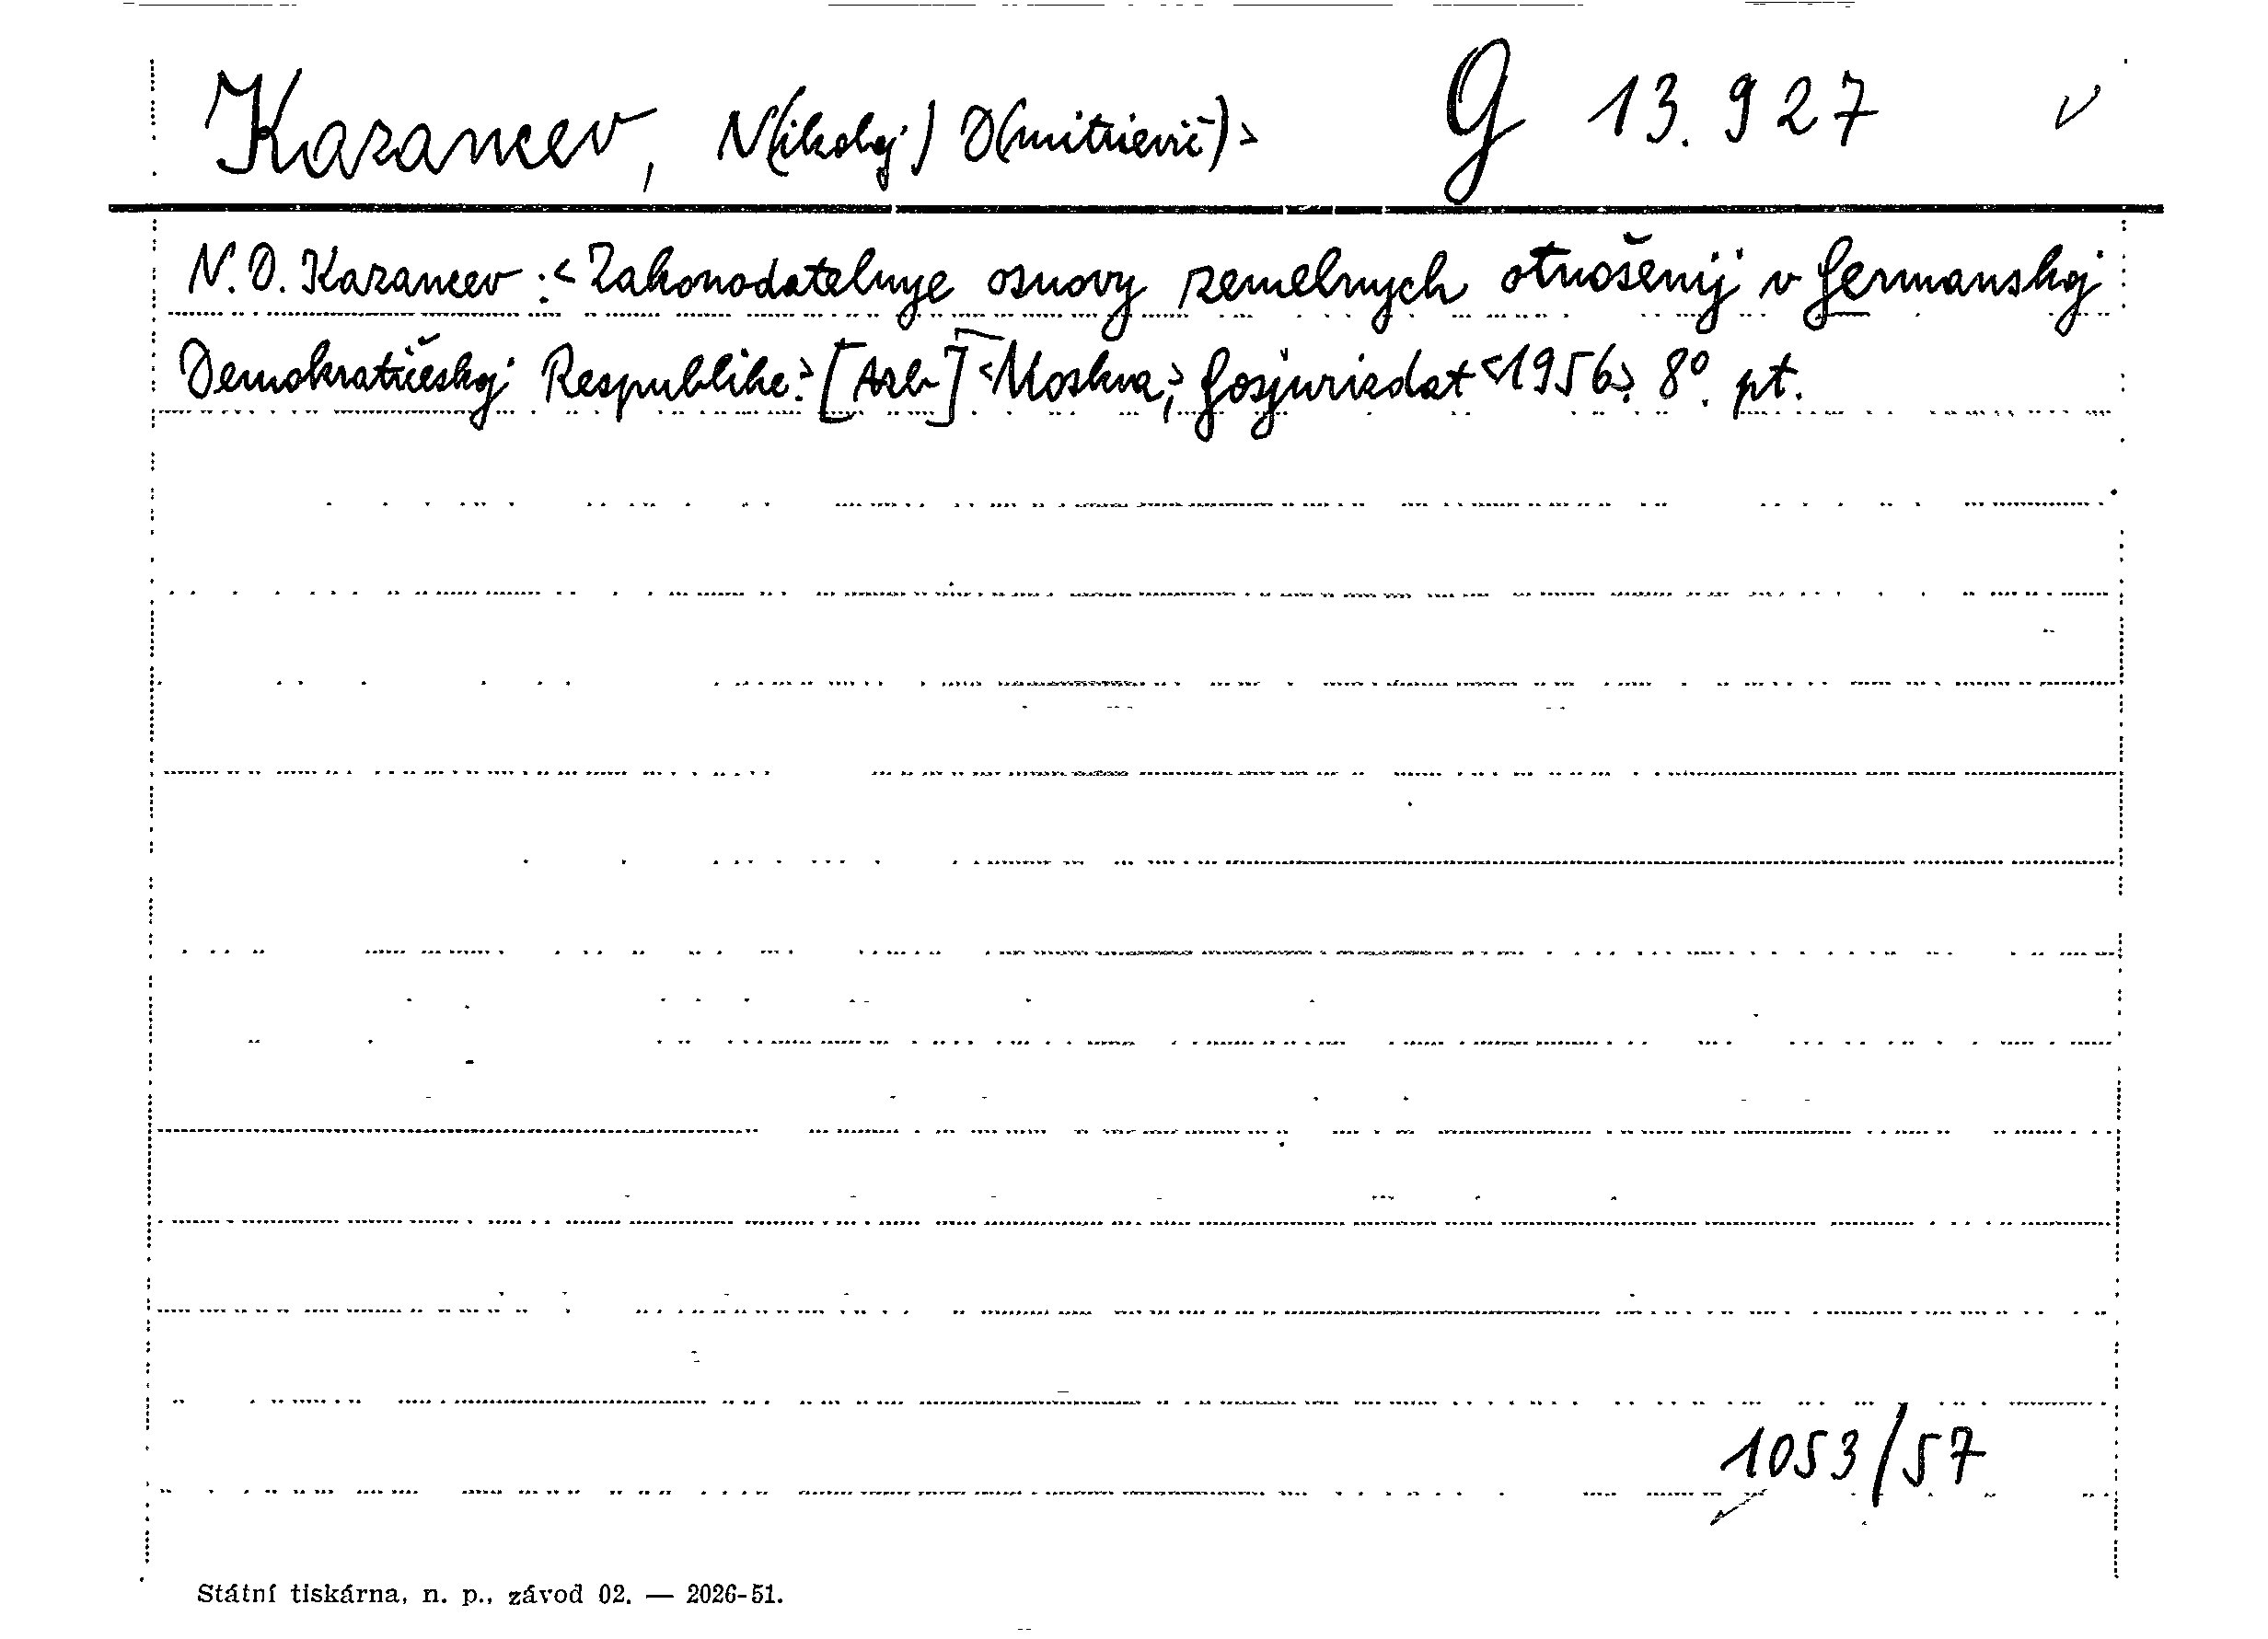 Kazancev, N(ikolaj) D(mitrievič)> G 13.927 v
N. D. Kazancev :<Zakonodatelnye osnovy zemelnych otnošenij v Germanskoj
Demokratičeskoj Respublike.> [Azb] <Moskva,> Gosjurizdat <1956>. 8°. pt.
1053/57
Státní tiskárna, n. p., závod 02. — 2026-51.